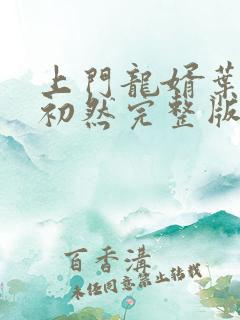 上門龍婿葉
初然完整版
百香溝
未经同意禁止转载